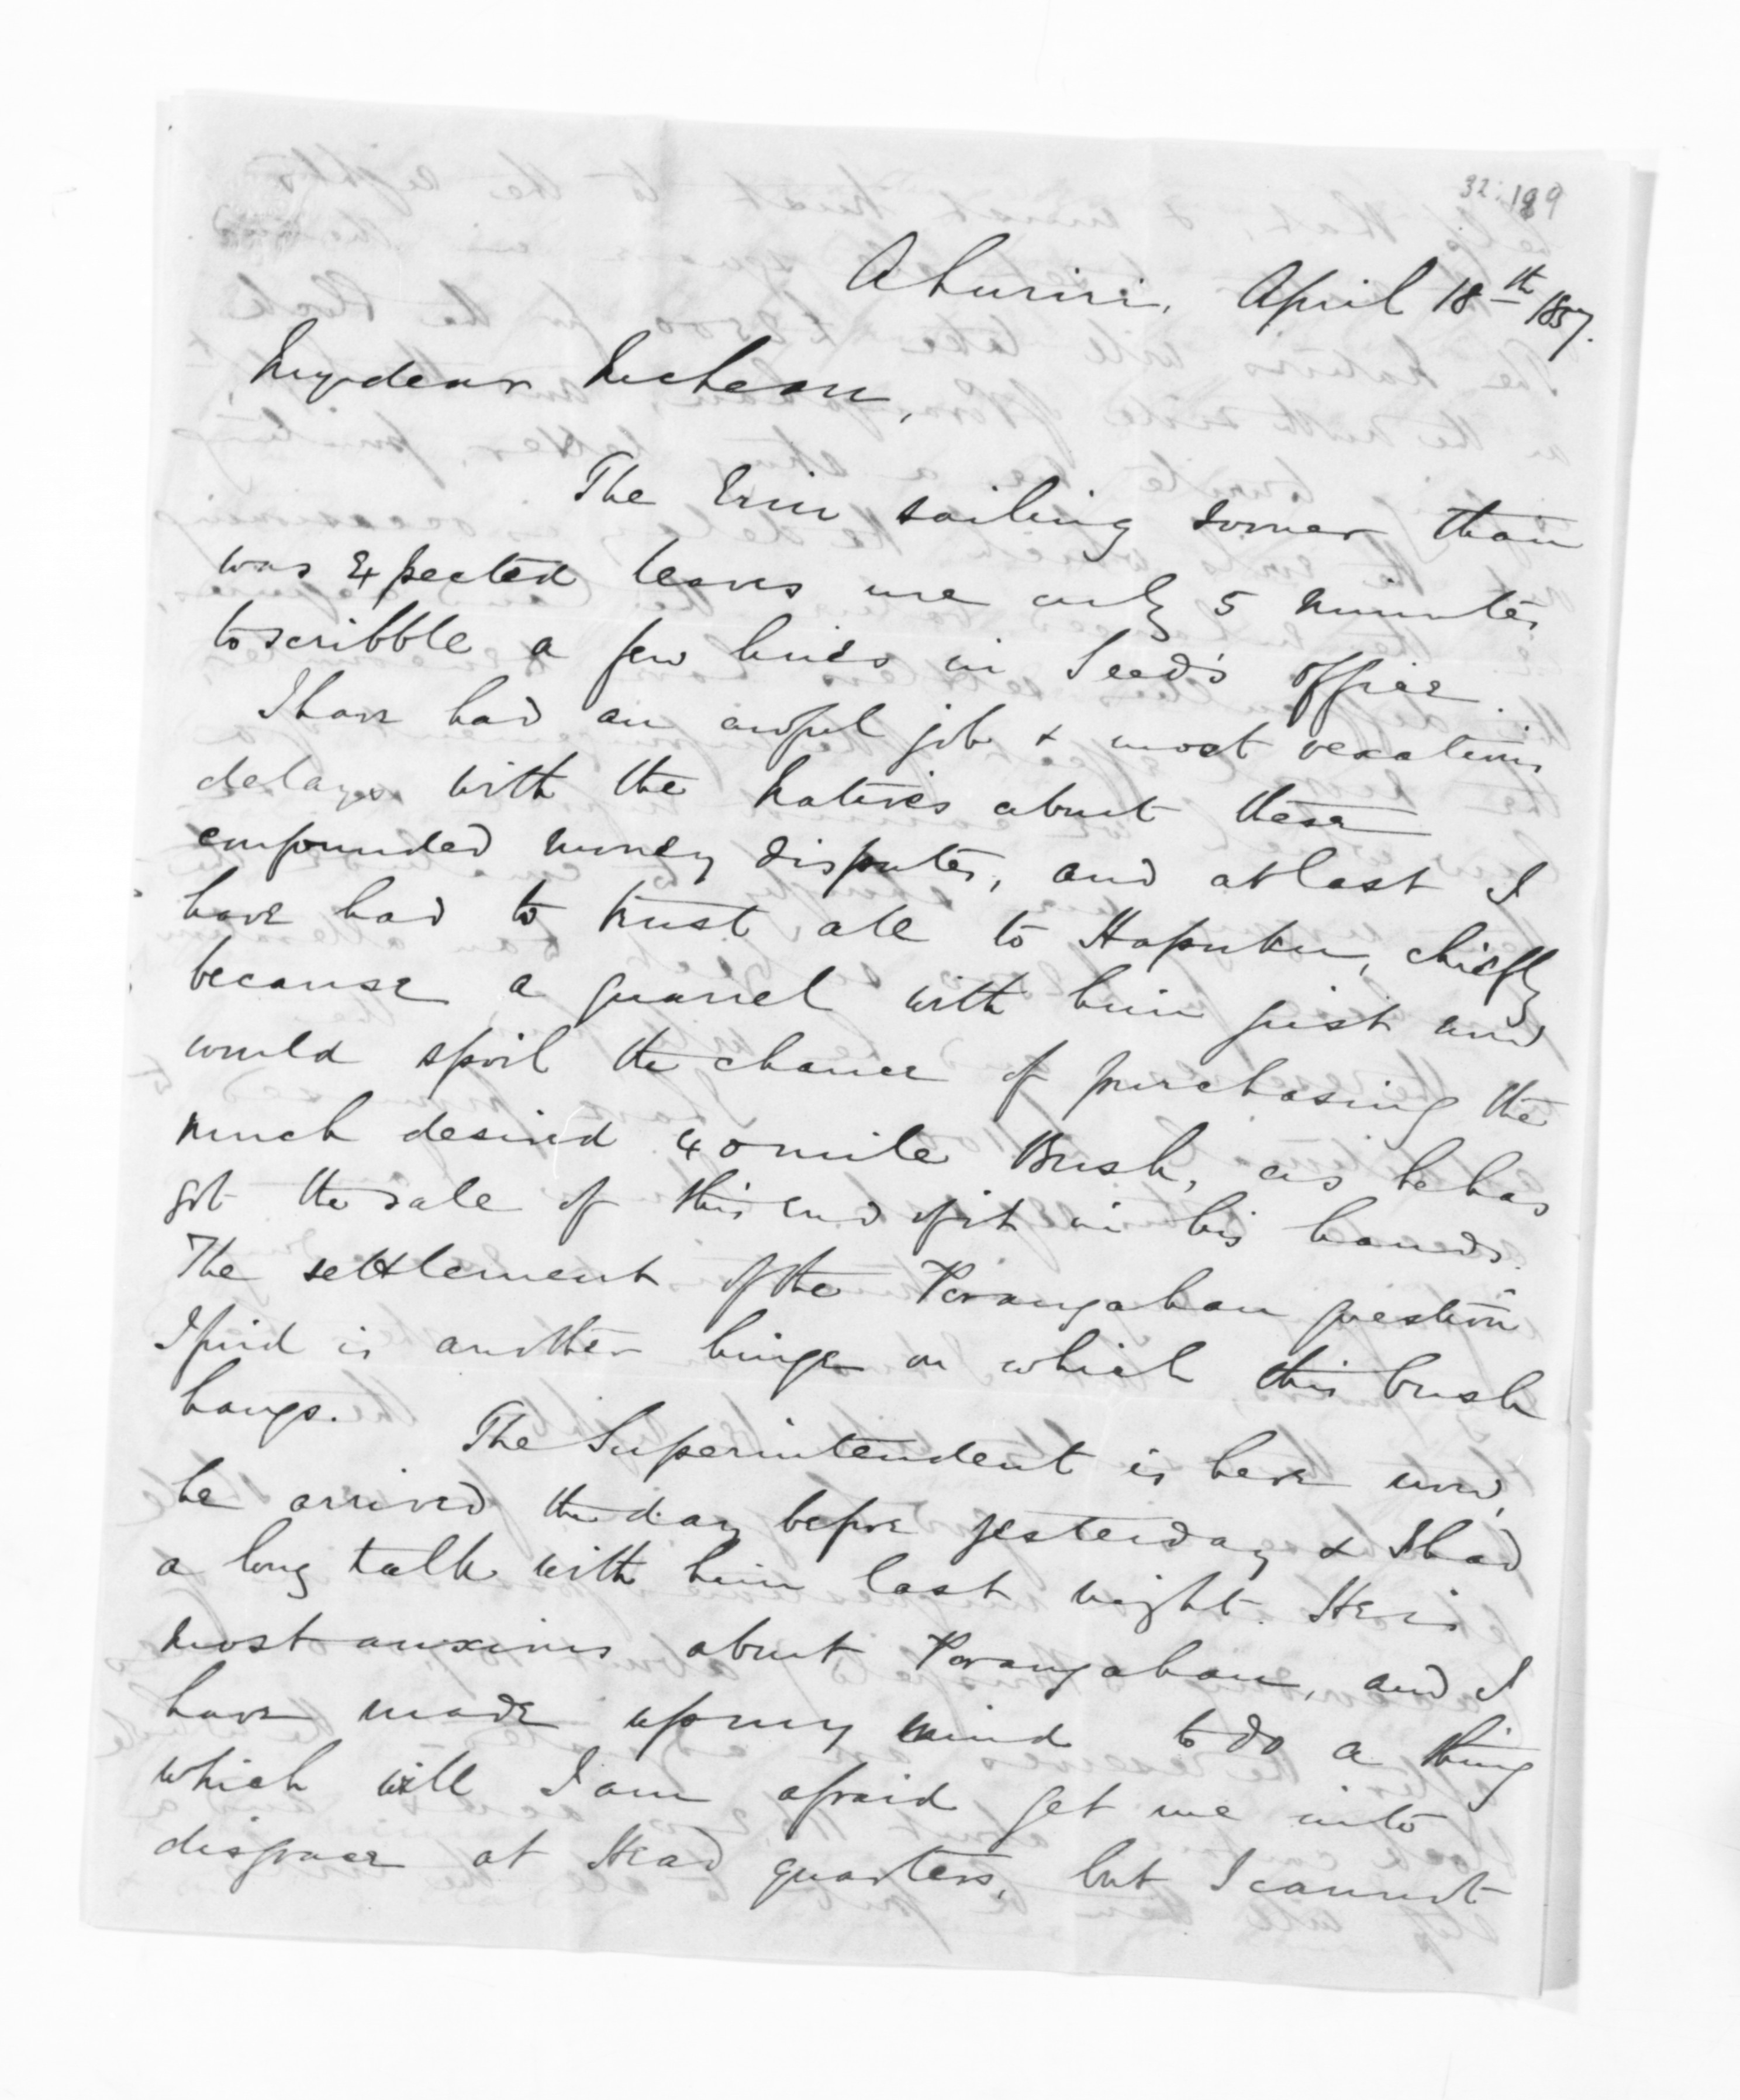 32:189
Ahuriri, April 18th 1857.
My dear McLean,
The Erin sailing sooner than
was expected leaves me only 5 minutes
to scribble a few lines in Seed's office.
I have had an awful job & most vexatious
delays with the Natives about these
confounded money disputes, and at last I
have had to trust all to Hapuku, chiefly
because a quarrel with him just now
would spoil the chance of purchasing the
much desired 40 mile Bush, as he has
got the sale of this end of it in his hands.
The settlement of the Porangahau question
I find is another hinge on which this bush
hangs. The Superintendent is here now,
he arrived the day before yesterday & I had
a long talk with him last night. He is
most anxious about Porangahau, and I
have made up my mind to do a thing
which will I am afraid get me into
disgrace at Head quarters, but I cannot